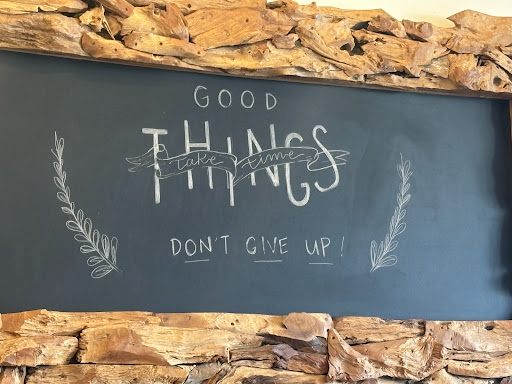 GOOD
THINGS
take time
DON'T GIVE UP!